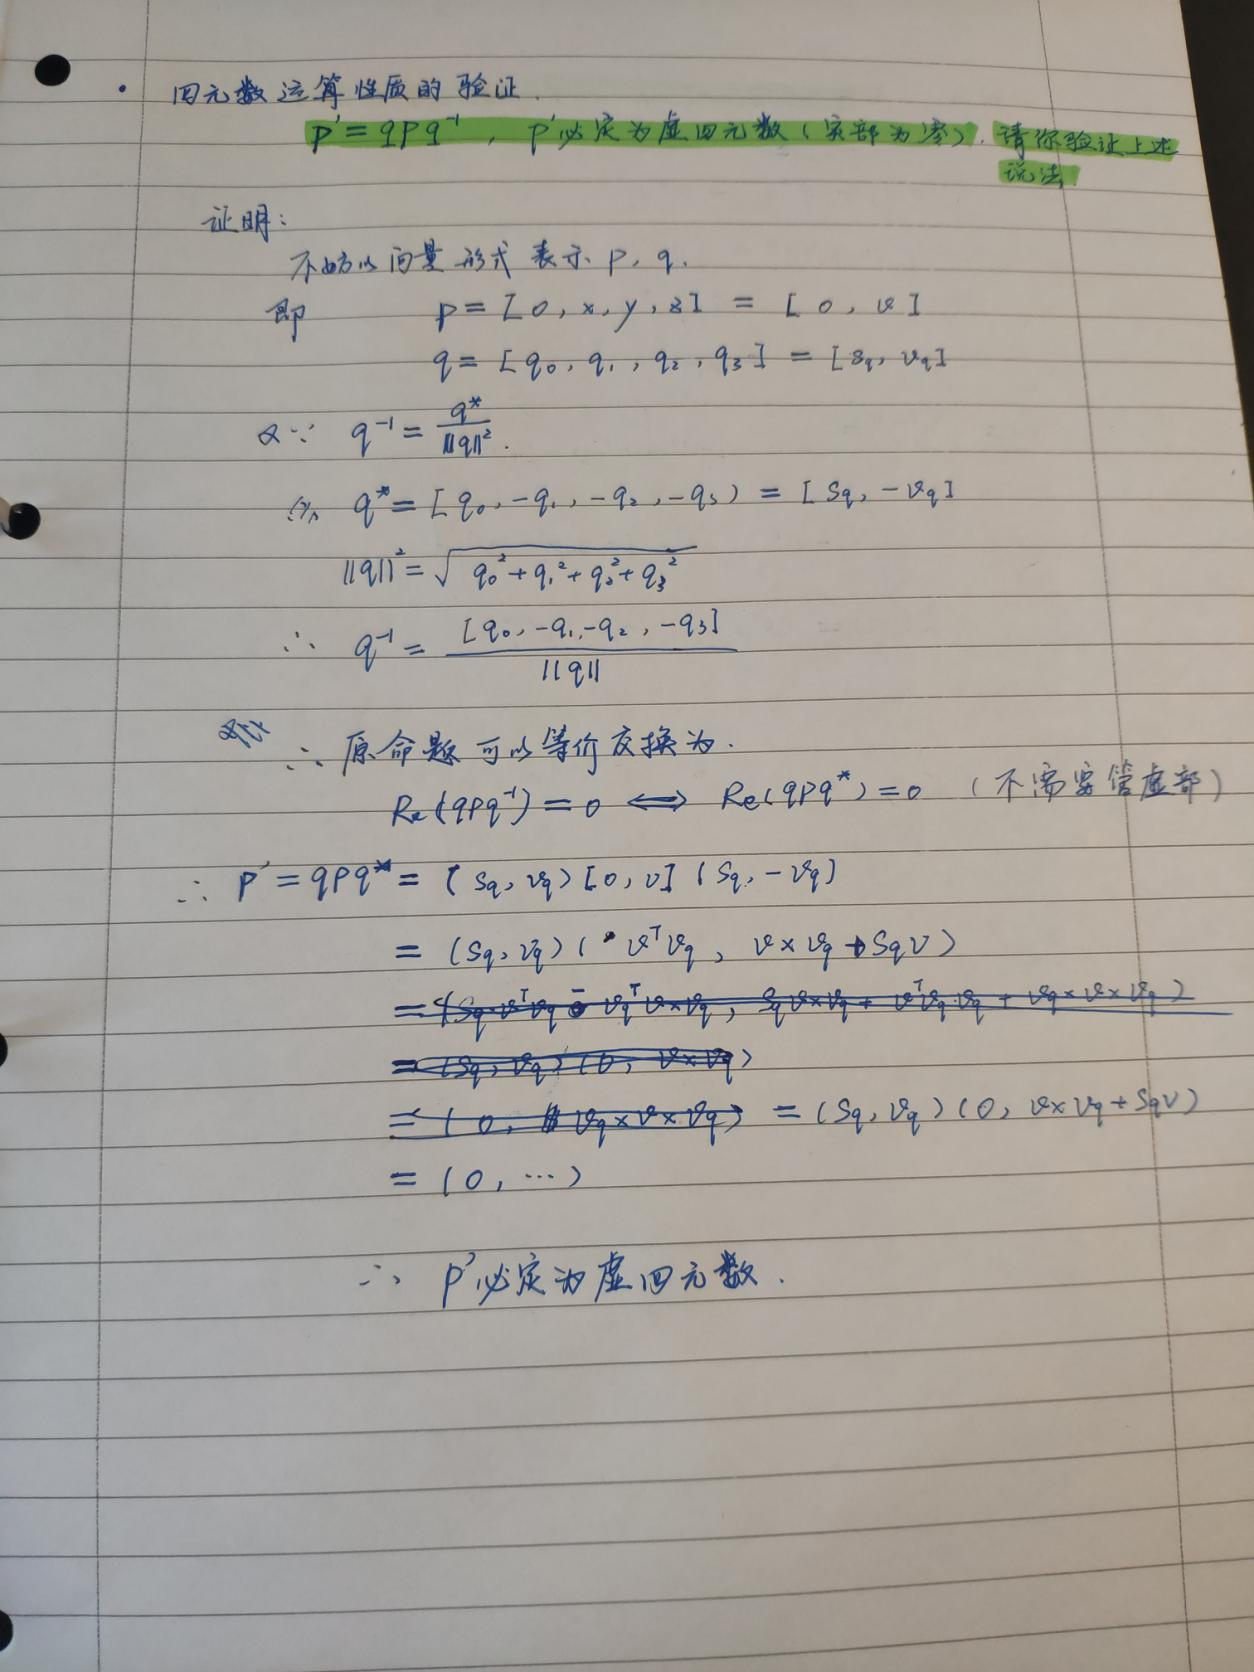 · 四元数运算性质的验证.
p' = qpq⁻¹, p'必定为虚四元数(实部为零). 请你验证上述
说法
证明:
不妨以向量形式表示 p, q.
即 p = [0, x, y, z] = [0, v]
q = [q₀, q₁, q₂, q₃] = [sq, vq]
又∵ q⁻¹ = q* / ||q||².
q* = [q₀, -q₁, -q₂, -q₃) = [Sq, -vq]
||q||² = √(q₀² + q₁² + q₂² + q₃²)
∴ q⁻¹ = [q₀, -q₁, -q₂, -q₃] / ||q||
∴ 原命题可以等价变换为.
Re(qpq⁻¹) = 0 ⟺ Re(qpq*) = 0 (不需要管虚部)
∴ p' = qpq* = [Sq, vq)[0, v](Sq, -vq]
= (Sq, vq)(vᵀvq, v×vq + Sqv)
= (Sq, vq)(0, v×vq + Sqv)
= (0, ⋯)
∴ p'必定为虚四元数.